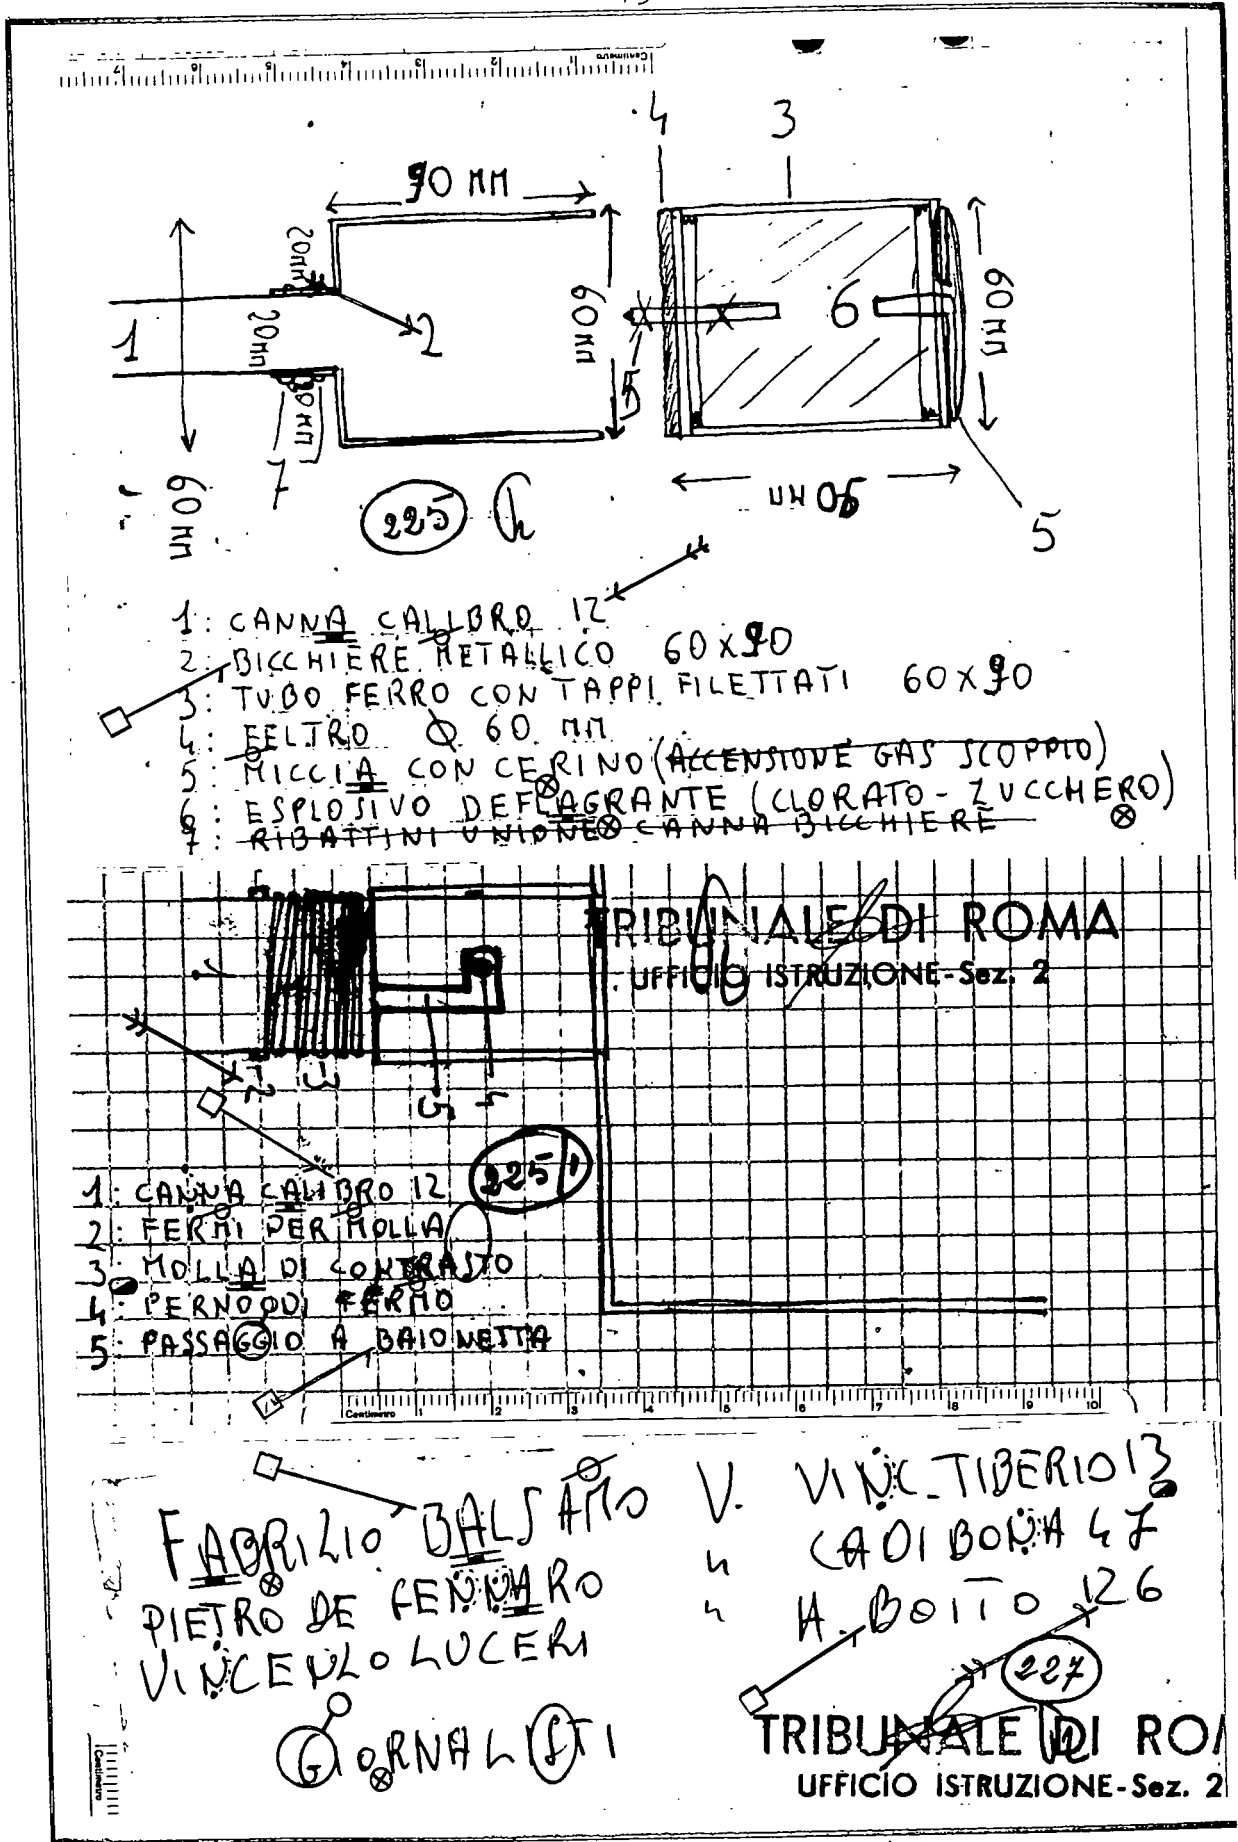 Centimetro 1 2 3 4 5 6 7
4 3
90 MM
20MM
60 MM
60 MM
1 20MM 2 6
5
7
60 MM
225
90 MM
5
1: CANNA CALIBRO 12
2: BICCHIERE METALLICO 60X90
3: TUBO FERRO CON TAPPI FILETTATI 60X90
4: FELTRO Ø 60 MM
5: MICCIA CON CERINO (ACCENSIONE GAS SCOPPIO)
6: ESPLOSIVO DEFLAGRANTE (CLORATO - ZUCCHERO)
7: RIBATTINI UNIONE CANNA BICCHIERE
TRIBUNALE DI ROMA
UFFICIO ISTRUZIONE-Sez. 2
1 2 3 5 4
225/1
1: CANNA CALIBRO 12
2: FERMI PER MOLLA
3: MOLLA DI CONTRASTO
4: PERNO DI FERMO
5: PASSAGGIO A BAIONETTA
Centimetro 1 2 3 4 5 6 7 8 9 10
FABRIZIO BALSAMO V. VINC. TIBERIO 13
PIETRO DE GENNARO " CADIBONA 47
VINCENZO LUCERI " A. BOITO 126
227
GIORNALISTI
TRIBUNALE DI RO
UFFICIO ISTRUZIONE-Sez. 2
Centimetro